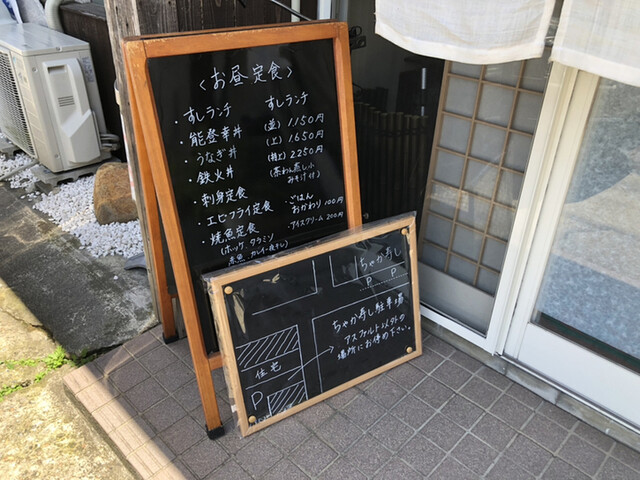 〈お昼定食〉
・すしランチ
・能登幸丼
・うなぎ丼
・鉄火丼
・刺身定食
・エビフライ定食
・焼魚定食
(ホッケ、タラミソ
赤魚、カレイ一夜干し)
すしランチ
(並) 1,150円
(上) 1,650円
(特上) 2,250円
(茶わん蒸し
みそ汁付)
・ごはん
おかわり 100円
・アイスクリーム 200円
ちゃか寿し
P P
ちゃか寿し駐車場
アスファルト以外の
場所にお停め下さい。
住宅
P